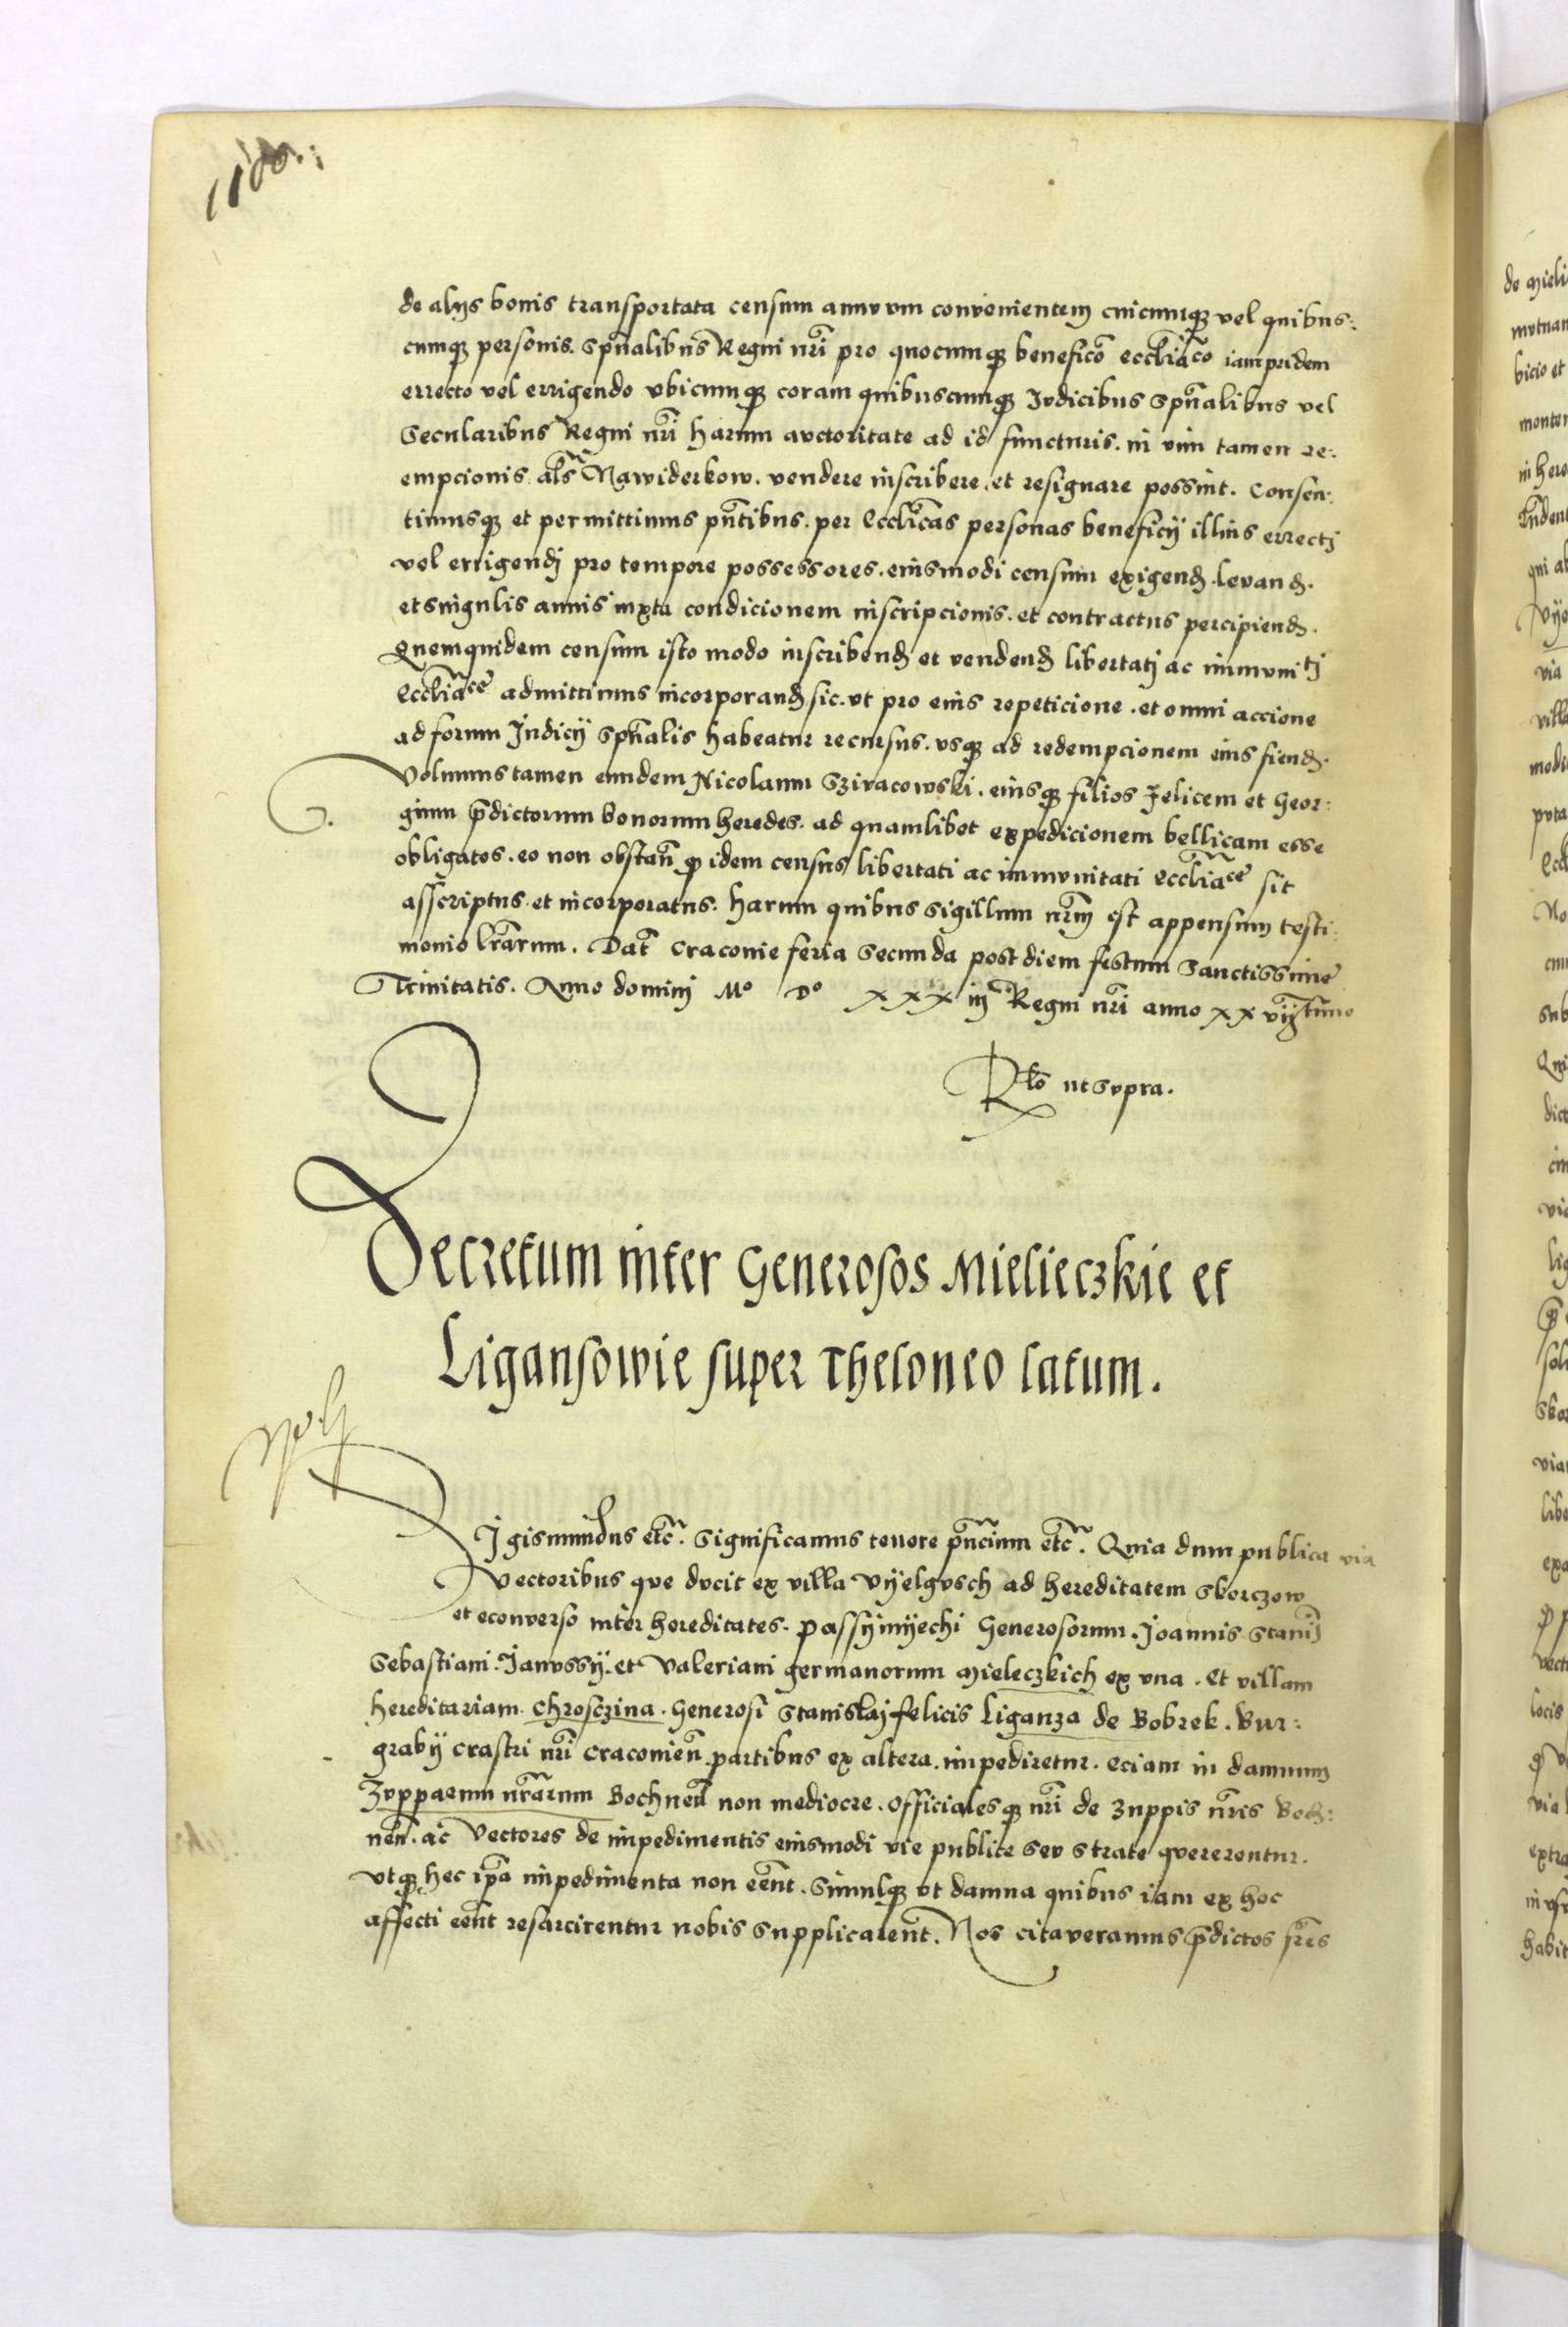 de alijs bonis transportata censum annuum convenientem cuicumq3 vel quibus:
cumq3 personis. spũalibus Regni nr̃i pro quocumq3 benefico᷃ eccl̃iaco iampridem
errecto vel errigendo vbicumq3 coram quibuscumq3 Iudicibus spũalibus vel
Secularibus Regni nr̃i harum auctoritate ad id functuris. in vim tamen re:
empcionis al̃s Nawiderkow. vendere inscribere. et resignare possint. Consen:
timusq3 et permittimus pñtibus. per eccl̃icas personas beneficij illius errectj
vel errigendj pro tempore possessores. eiusmodi censum exigend. levand.
et singulis annis iuxta condicionem inscripcionis. et contractus percipiend.
Quemquidem censum isto modo inscribend et vendend libertatj ac immunitj
eccl̃iace admittimus incorporand sic. vt pro eius repeticione. et omni accione
ad forum Iudicij spũalis habeatur recursus. vsq3 ad redempcionem eius fiend.
Volumus tamen eundem Nicolaum Sziracowski. eiusq3 filios Felicem et Geor:
gium p̃dictorum bonorum heredes. ad quamlibet expedicionem bellicam esse
obligatos. eo non obstañ qp idem census libertati ac immunitati eccl̃iace sit
asscriptus. et incorporatus. harum quibus sigillum nr̃m est appensum testi:
monio lr̃arum. Dat̃ Craconie feria secunda post diem festum Sanctissime
Trinitatis. Anno dominj Mº Dº xxx iij Regni nr̃i anno xx vijtimo
Rl̃o ut supra.
Decretum inter Generosos Mielieczkie et
Ligansowie super Theloneo latum.
Sigismundus etc̃. Significamus tenore pñcium etc̃. Quia dum publica via
Vectoribus que ducit ex villa Vijelgusch ad hereditatem Skorczow
et econverso inter hereditates. Passijmijechi Generosorum. Joannis Stanij
Sebastiani. Janussij. et Valeriani germanorum Mieleczkich ex una. Et villam
hereditariam. Chrosczina. Generosi Stanislaj felicis Liganza de Bobrek. Bur:
grabij crastri nr̃i Craconien̄ partibus ex altera. impediretur. eciam in damnum
Zuppaernm nr̃arum Bochneñ non mediocre. Officialesq3 nr̃i de Zuppis nr̃is Boch:
neñ. ac vectores de impedimentis eiusmodi vie publice seu strate quererentur.
Vtq3 hec ip̃a impedimenta non eēnt. Simulq3 ut damna quibus iam ex hoc
affecti eēnt resarcirentur nobis supplicarent. Nos citaveramus p̃dictos fr̃es